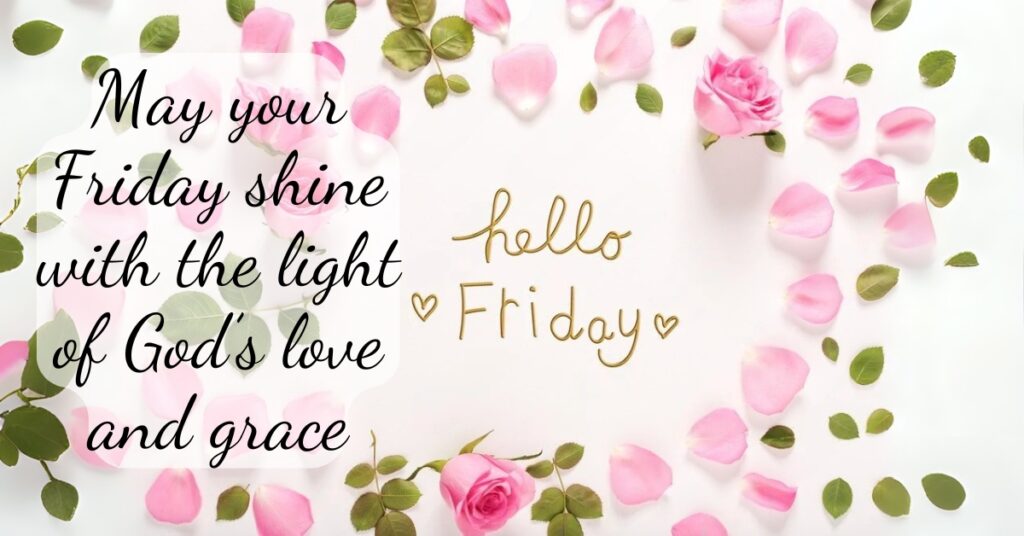 May your
Friday shine
with the light
of God's love
and grace
hello
Friday